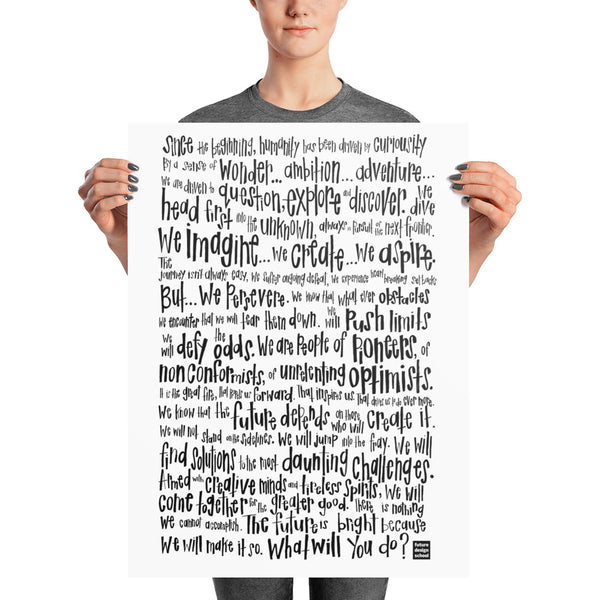 Since the beginning, humanity has been driven by curiosity
by a sense of wonder... ambition... adventure...
We are driven to question, explore and discover. We dive
head first into the unknown, always in pursuit of the next frontier.
We imagine... we create... we aspire.
The journey isn't always easy, we suffer ongoing defeat, we experience heart breaking set backs
But... we persevere. We know that what ever obstacles
we encounter that we will tear them down. We will push limits
we will defy the odds. We are people of pioneers, of
non conformists, of unrelenting optimists.
It is the great fire, that bonds us forward. That inspires us. That drives us to do ever more.
We know that the future depends on those who will create it.
We will not stand on the sidelines. We will jump into the fray. We will
find solutions to the most daunting challenges.
Armed with creative minds and tireless spirits, we will
come together for the greater good. There is nothing
we cannot accomplish. The future is bright because
we will make it so. What will you do?
future
design
school